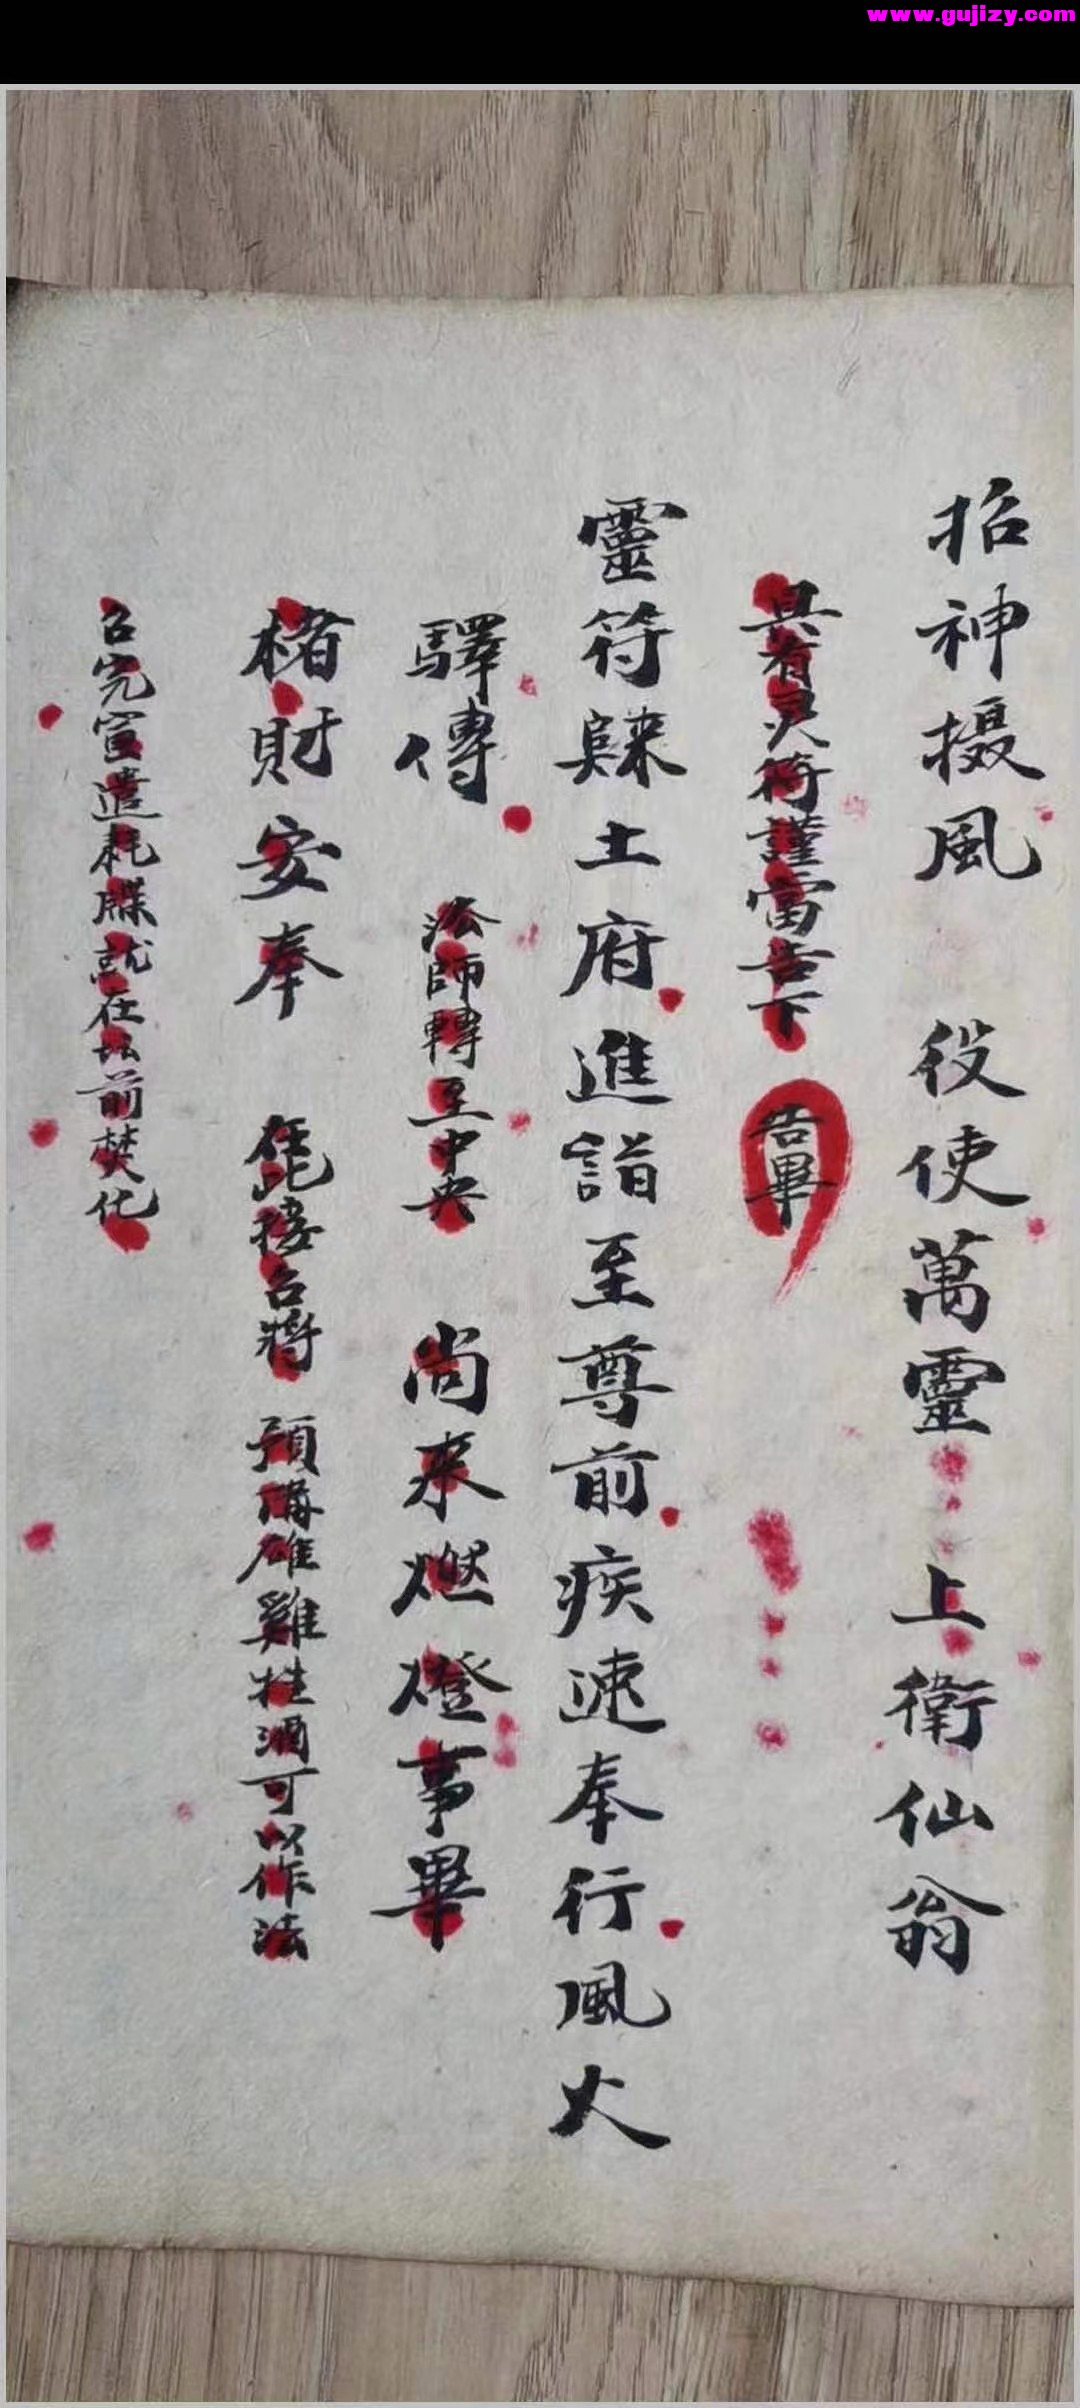 www.gujizy.com
招神摄風 役使萬靈 上衛仙翁
具有灵符謹當告下 告畢
靈符歸土府進詣至尊前疾速奉行風火
驛傳 法師轉至中央 尚来燃燈事畢
楮財安奉 接召將 預備雄雞牲酒可以作法
召完宣遣耗牒就在坛前焚化